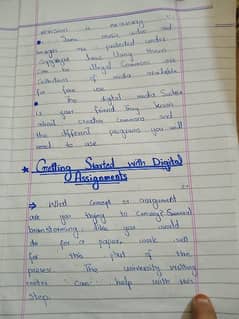 version is necessary
• Some music video and
images are protected under
copyright laws. Using them
can be illegal. Commons are
collections of media available
for free use.
• The digital media Suite
is your friend. They know
about creative commons and
the different programs you will
need to use
* Getting Started with Digital
Assignments
⇒ What concept or assignment
are you trying to convey?
brainstorming, like you would
do for a paper, work well
for this part of the
process. The university writing
center can help with this
step.